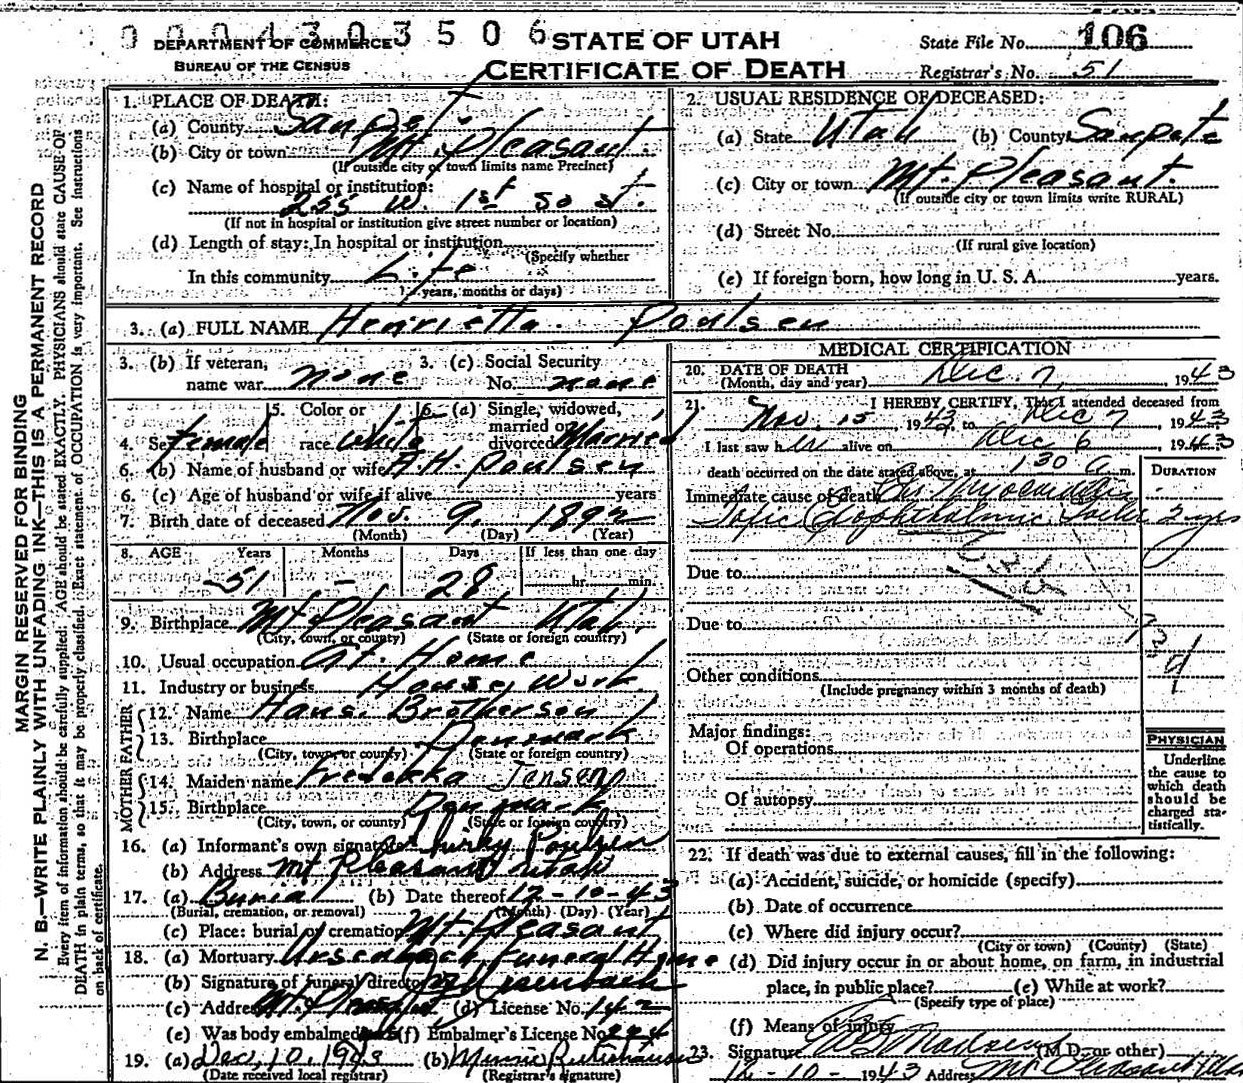 0004303506
DEPARTMENT OF COMMERCE
BUREAU OF THE CENSUS
STATE OF UTAH
CERTIFICATE OF DEATH
State File No. 106
Registrar's No. 51
MARGIN RESERVED FOR BINDING
N. B.—WRITE PLAINLY WITH UNFADING INK—THIS IS A PERMANENT RECORD
Every item of information should be carefully supplied. AGE should be stated EXACTLY. PHYSICIANS should state CAUSE OF
DEATH in plain terms, so that it may be properly classified. Exact statement of OCCUPATION is very important. See instructions
on back of certificate.
1. PLACE OF DEATH:
(a) County Sanpete
(b) City or town Mt. Pleasant.
(If outside city or town limits name Precinct)
(c) Name of hospital or institution:
255 W. 1st So st.
(If not in hospital or institution give street number or location)
(d) Length of stay: In hospital or institution
(Specify whether
In this community Life
years, months or days)
2. USUAL RESIDENCE OF DECEASED:
(a) State Utah (b) County Sanpete
(c) City or town Mt. Pleasant.
(If outside city or town limits write RURAL)
(d) Street No.
(If rural give location)
(e) If foreign born, how long in U. S. A. years.
3. (a) FULL NAME Henrietta Poulsen
3. (b) If veteran, name war none
3. (c) Social Security No. none
4. Sex female
5. Color or race white
6. (a) Single, widowed, married or divorced Married
6. (b) Name of husband or wife A.H. Poulsen
6. (c) Age of husband or wife if alive years
7. Birth date of deceased Nov. 9, 1892
(Month) (Day) (Year)
8. AGE Years Months Days If less than one day
51 - 28 hr. min.
9. Birthplace Mt Pleasant Utah.
(City, town, or county) (State or foreign country)
10. Usual occupation At. Home
11. Industry or business House Work.
FATHER
12. Name Hans. Brotherson
13. Birthplace Denmark
(City, town or county) (State or foreign country)
MOTHER
14. Maiden name Jensen
15. Birthplace Denmark
(City, town, or county) (State or foreign country)
16. (a) Informant's own signature Shirley Poulsen
(b) Address Mt Pleasant Utah
17. (a) Burial (b) Date thereof 12-10-43
(Burial, cremation, or removal) (Month) (Day) (Year)
(c) Place: burial or cremation Mt. Pleasant
18. (a) Mortuary Ursenbach Funeral Home
(b) Signature of funeral director Ursenbach
(c) Address Mt. Pleasant (d) License No. 142
(e) Was body embalmed (f) Embalmer's License No. 294
19. (a) Dec. 10, 1943 (b) Minnie
(Date received local registrar) (Registrar's signature)
MEDICAL CERTIFICATION
20. DATE OF DEATH
(Month, day and year) Dec. 7, 1943
21. I HEREBY CERTIFY, That I attended deceased from
Nov. 15 1943, to Dec 7, 1943
I last saw her alive on Dec 6 1943
death occurred on the date stated above, at 1 30 a m.
DURATION
Immediate cause of death
Toxic Exophthalmic Goiter 2 yrs
Due to
Due to
Other conditions
(Include pregnancy within 3 months of death)
Major findings:
Of operations
Of autopsy
PHYSICIAN
Underline
the cause to
which death
should be
charged sta-
tistically.
22. If death was due to external causes, fill in the following:
(a) Accident, suicide, or homicide (specify)
(b) Date of occurrence
(c) Where did injury occur?
(City or town) (County) (State)
(d) Did injury occur in or about home, on farm, in industrial
place, in public place? (e) While at work?
(Specify type of place)
(f) Means of injury
23. Signature Madsen (M D. or other)
12-10-1943 Address Mt Pleasant Utah